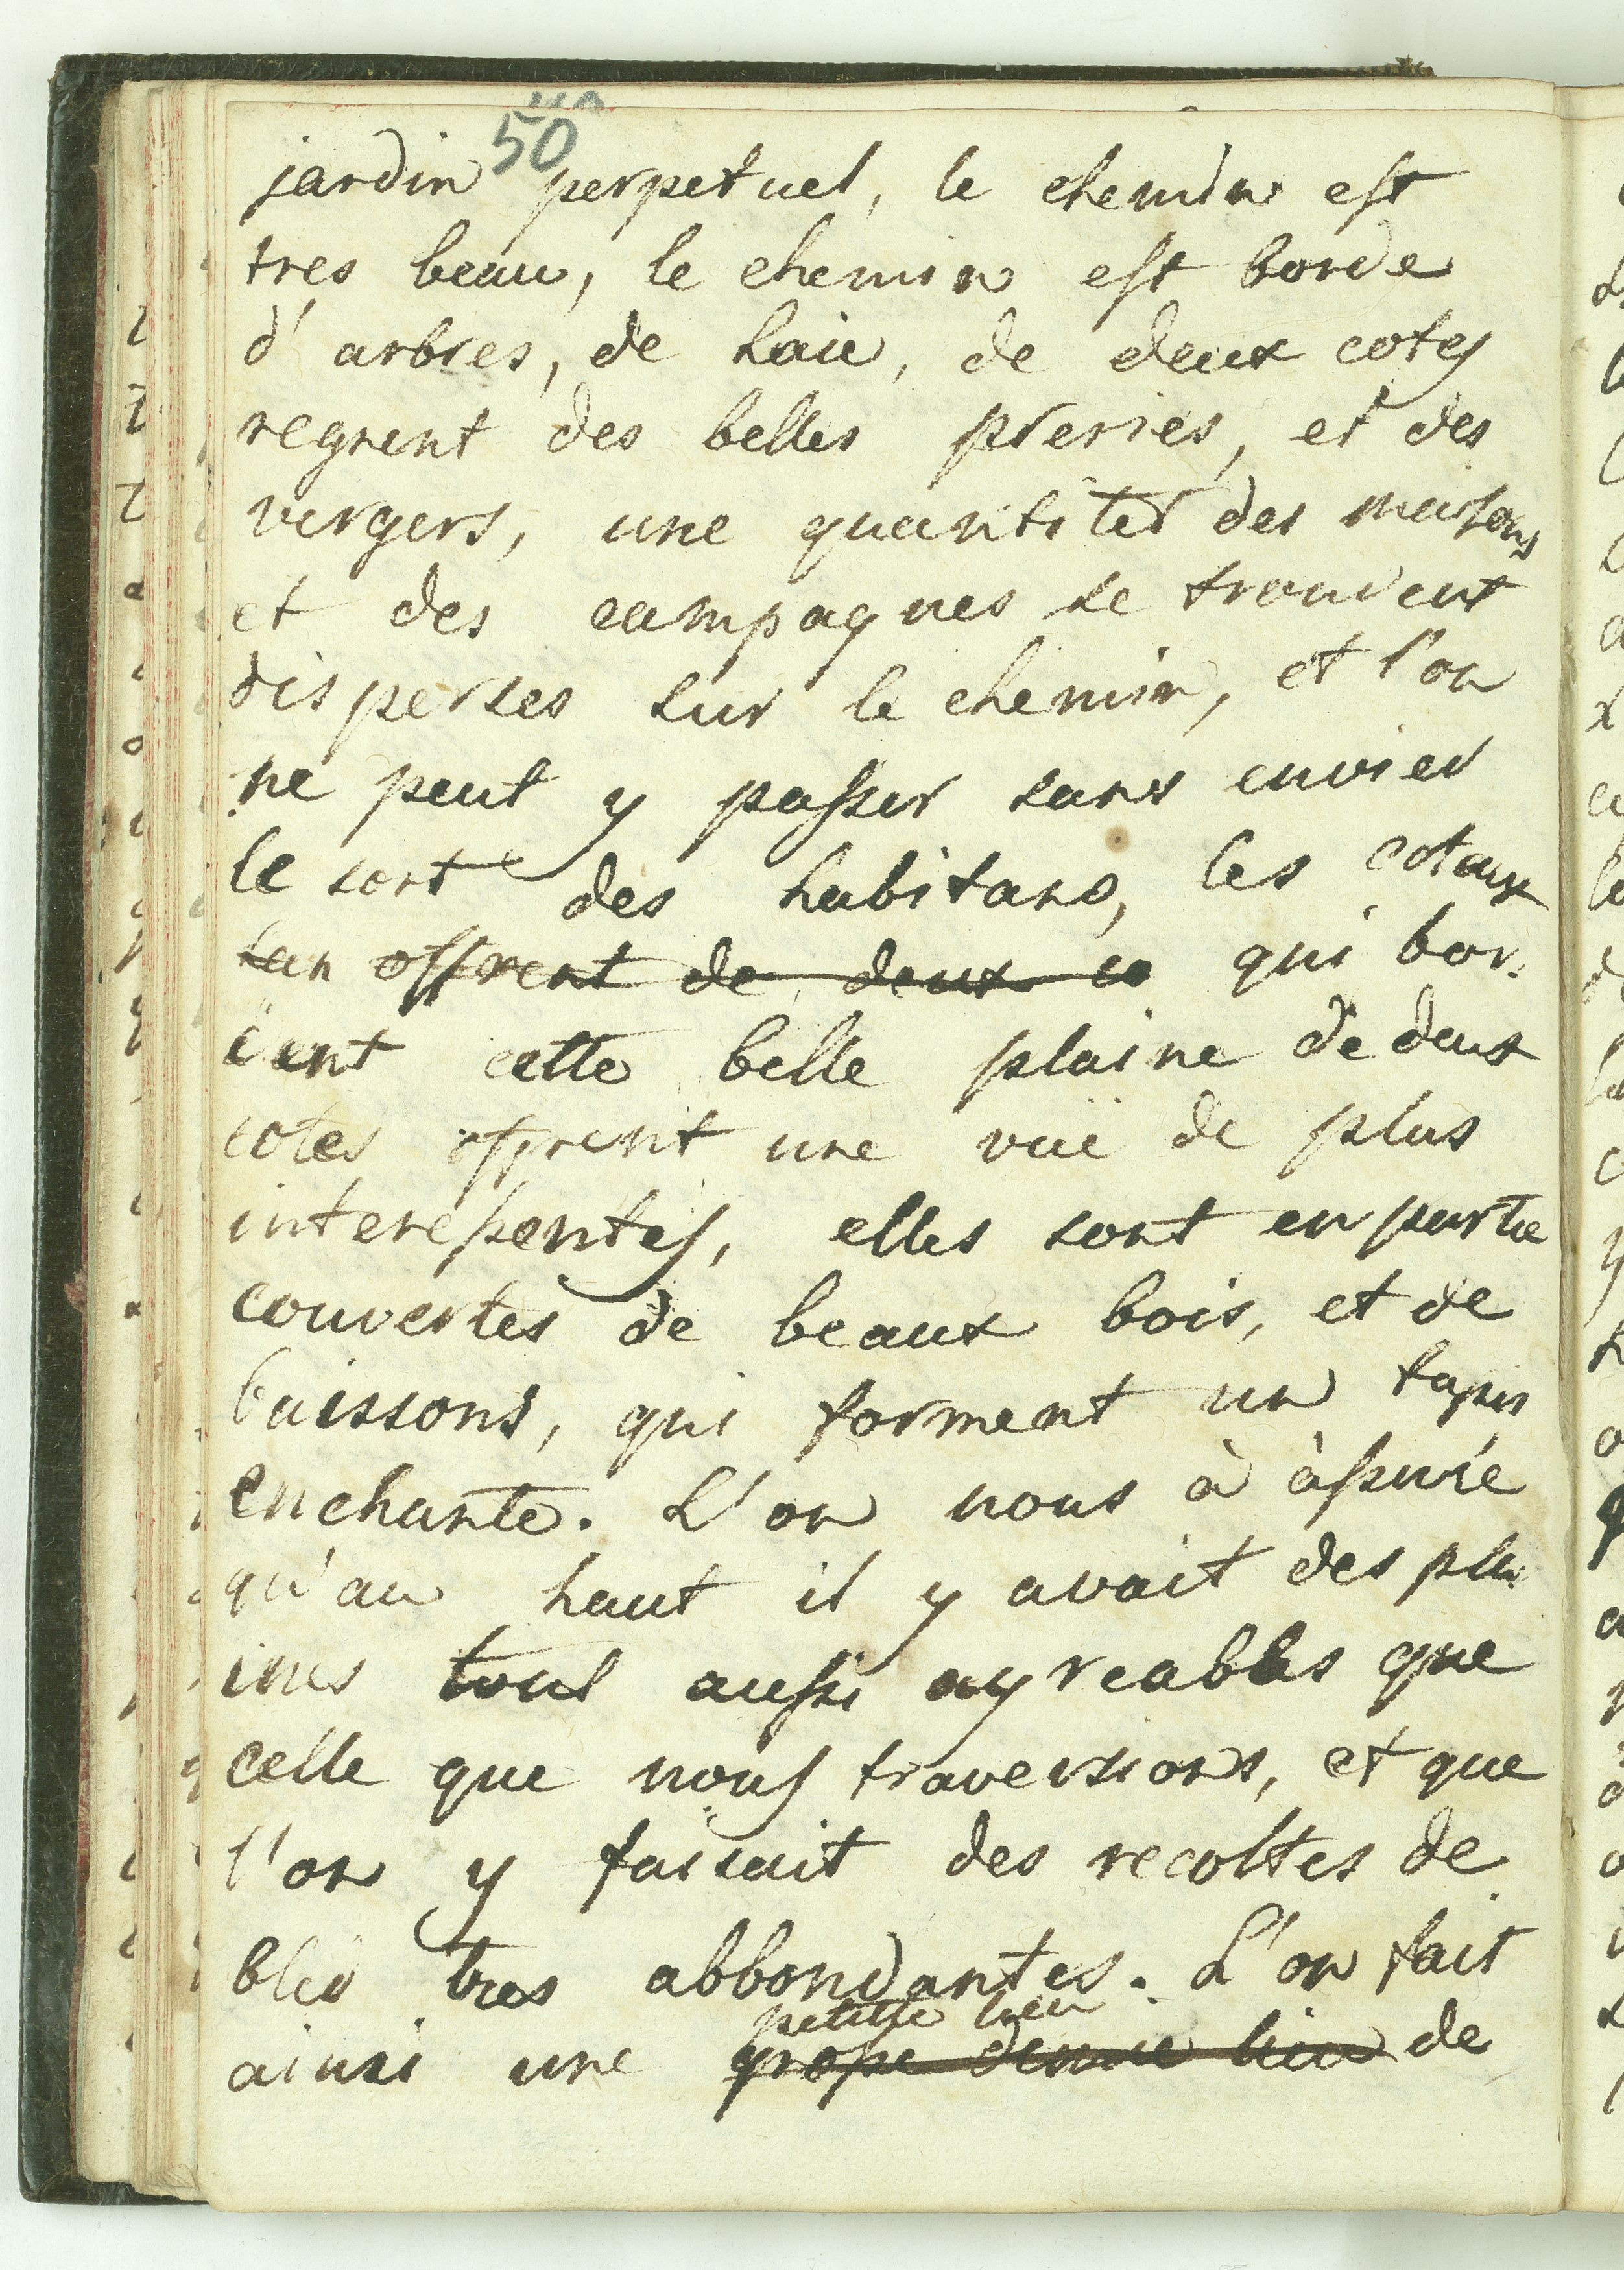 50
jardin perpetuel, le chemin est
tres beau, le chemin est borde
d'arbres, de haie, de deux cotes
regnent des belles preries, et des
vergers, une quantitet des maisons
et des campagnes se trouvent
disperses sur le chemin, et l'on
ne peut y passer sans envier
le sort des habitans, les cotaux
offrent de deux co qui bor-
dent cette belle plaine de deux
cotes offrent une vuë de plus
interessentes, elles sont en partie
couvertes de beaux bois, et de
buissons, qui forment un tapis
enchante. L'on nous à àssuré
qu'au haut il y avait des pla-
ines tout aussi agreables que
celle que nous traversions, et que
l'on y faisait des recoltes de
bleś tres abbondantes. L'on fait
petitte lieu
ainsi une grosse demie lieu de